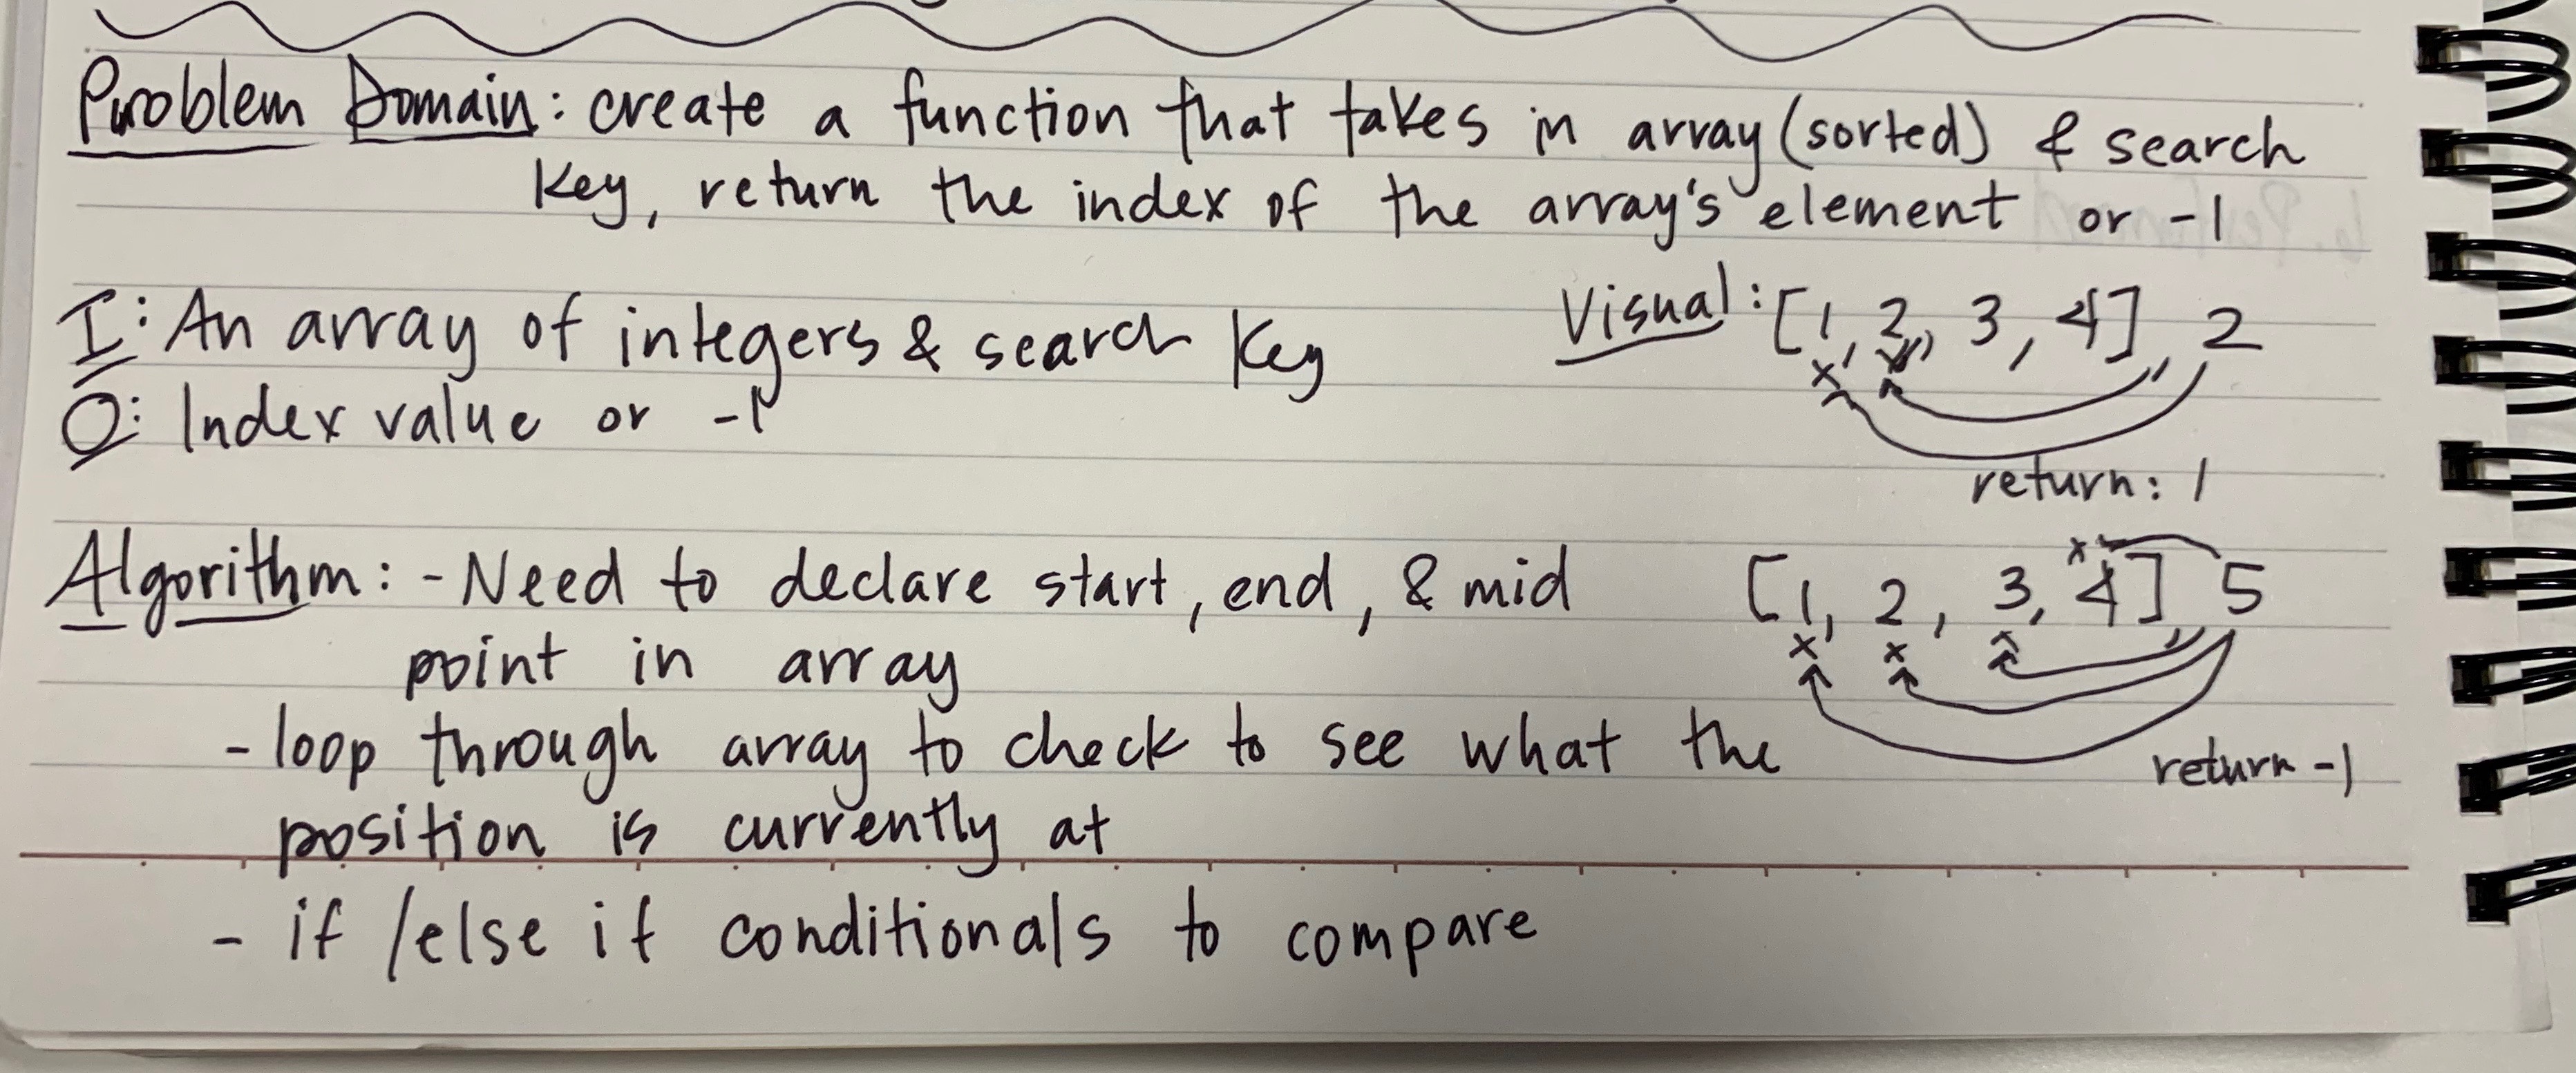 Problem Domain: create a function that takes in array (sorted) & search
key, return the index of the array's element or -1
I: An array of integers & search key
O: Index value or -1
Visual: [1, 2, 3, 4], 2
x
return: 1
Algorithm: - Need to declare start, end, & mid
point in array
- loop through array to check to see what the
position is currently at
- if /else if conditionals to compare
x
[1, 2, 3, 4] 5
x x
return -1